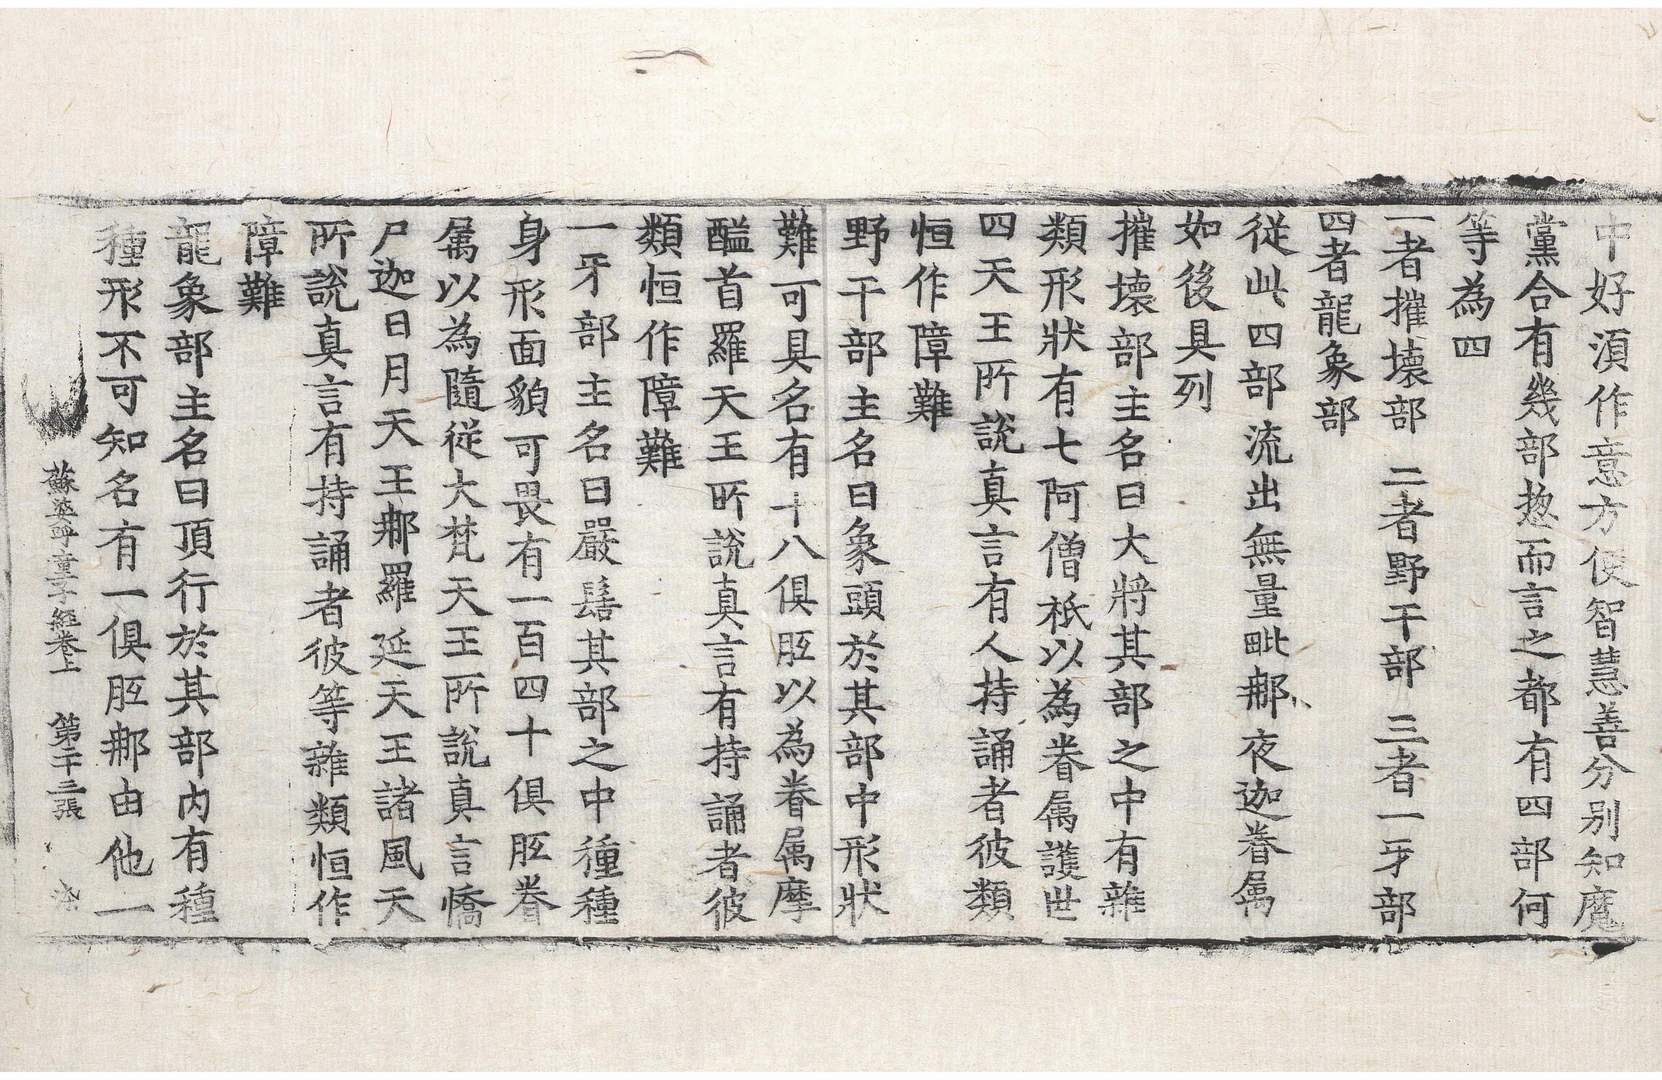 中好湏作意方便智慧善分别知魔
黨合有幾部揔而言之都有四部何
等為四
一者摧壞部 二者野干部 三者一牙部
四者龍象部
從此四部流出無量毗那夜迦眷属
如後具列
摧壞部主名曰大將其部之中有雜
類形狀有七阿僧祇以為眷属護世
四天王所說真言有人持誦者彼類
恒作障難
野干部主名曰象頭於其部中形狀
難可具名有十八俱胝以為眷属摩
醯首羅天王所說真言有持誦者彼
類恒作障難
一牙部主名曰嚴髻其部之中種種
身形面貌可畏有一百四十俱胝眷
属以為隨從大梵天王所說真言憍
尸迦日月天王那羅延天王諸風天
所說真言有持誦者彼等雜類恒作
障難
龍象部主名曰頂行於其部内有種
種形不可知名有一俱胝那由他一
蘇婆呼童子經卷上 第二十三張